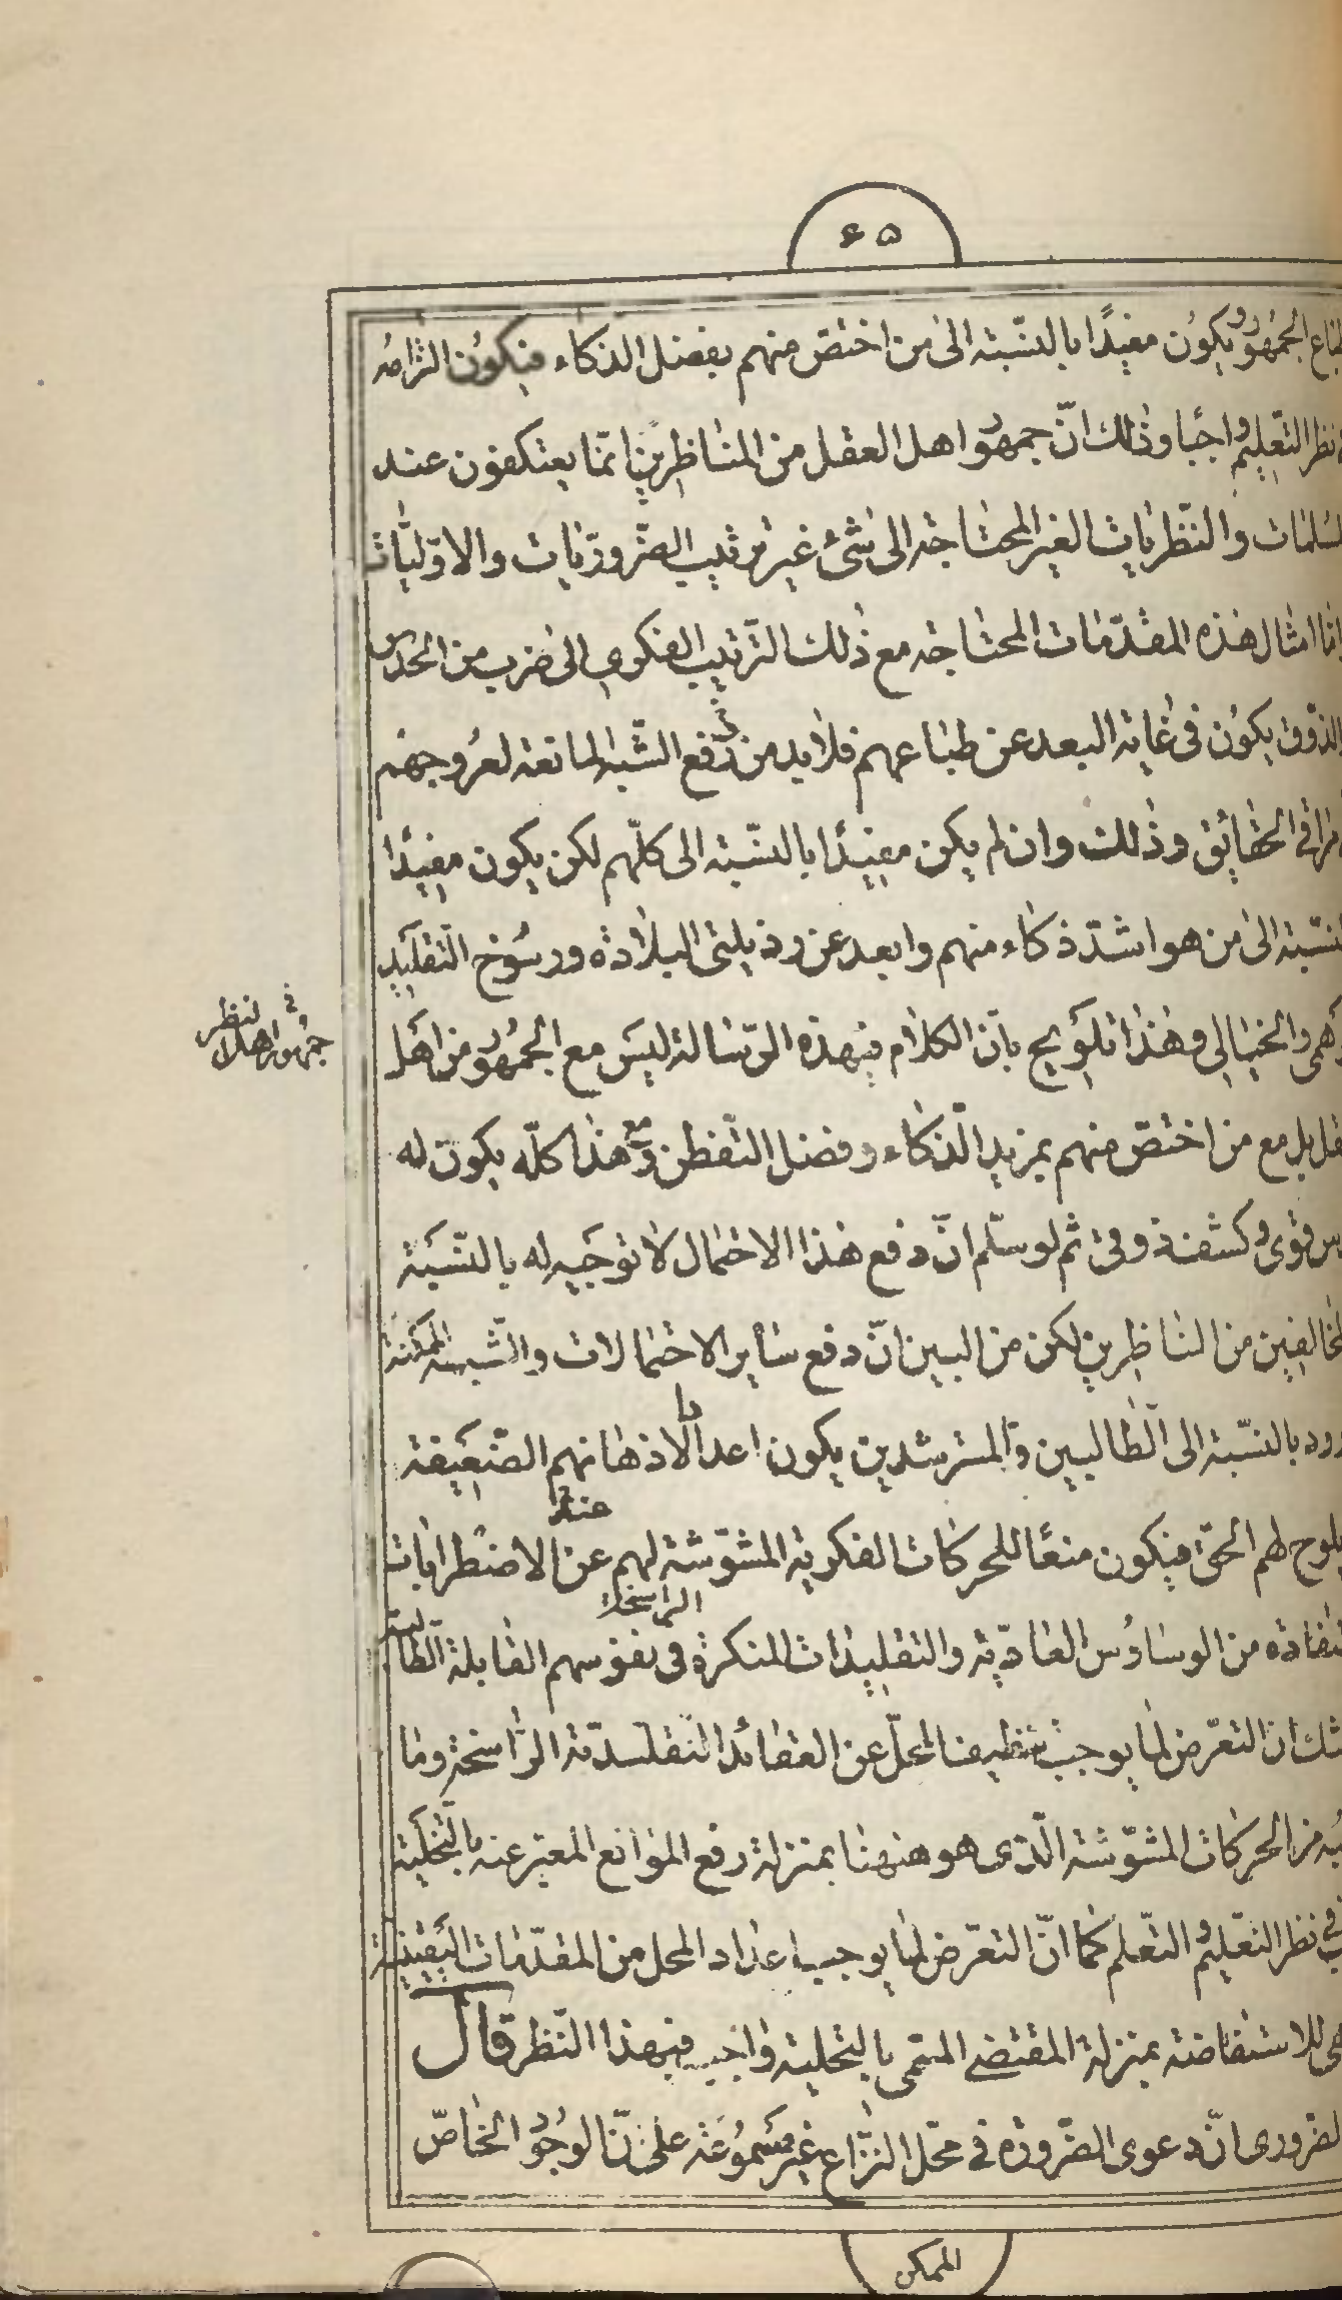 ٦٥
طباع الجمهور ويكون مفيدًا بالنسّبة الى من اختصّ منهم بفضل الذكاء فيكون التزامه
نظر التعليم واجبًا وذلك انّ جمهور اهل العقل من المناظرين انّما يعتكفون عند
المسلمات والنّظريات الغير المحتاجة الى شئ غير ترتيب الضّروريّات والاوّليّات
وامّا امثال هذه المقدّمات المحتاجة مع ذلك التّرتيب الفكري الى ضرب من الحدس
والذوق يكون فى غاية البعد عن طباعهم فلابد من دفع الشّبه المانعة لعروجهم
فى الحقائق وذلك وان لم يكن مفيدًا بالنسّبة الى كلّهم لكن يكون مفيدًا
بالنسّبة الى من هو اشدّ ذكاء منهم وابعد عن رذيلتى البلادة ورسوخ التّقليد
الوهمى والخيالى وهذا تلويح بانّ الكلام فى هذه الرّسالة ليس مع الجمهور من اهل
العقل بل مع من اختصّ منهم بمزيد الذكاء وفضل التّفطن ومع هذا كلّه يكون له
قوى وكشف ذوقى ثم لو سلّم انّ دفع هذا الاحتمال لا توجيه له بالنّسبة
المخالفين من الناظرين لكن من البين انّ دفع سائر الاحتمالات والشّبه الممكنة
الورود بالنسّبة الى الطالبين والمسترشدين يكون اعدادا لاذهانهم الضّعيفة
يلوح لهم الحقّ فيكون منعًا للحركات الفكرية المشوّشة لهم عن الاضطرابات
عنه
من الوساوس العاديّة والتقليدات المنكرة فى نفوسهم القابلة الطالبة
الراسخة
شك ان التعرّض لما يوجب تنظيف المحلّ عن العقائد التقليديّة الرّاسخة وما
من الحركات المشوّشة الّذى هو ههنا بمنزلة رفع الموانع المعبّر عنه بالتّخلية
فى نظر التّعليم والتّعلم كما انّ التعرّض لما يوجب اعداد المحل من المقدّمات اليقينيّة
هى للاستفاضة بمنزلة المقتضى المسمّى بالتحلية واجب فى هذا النّظر قال
الضرورى انّ دعوى الضّرورة فى محّل النزّاع غير مسموعة على انّ الوجود الخاصّ
الممكن
فى
جمهور اهل النظر